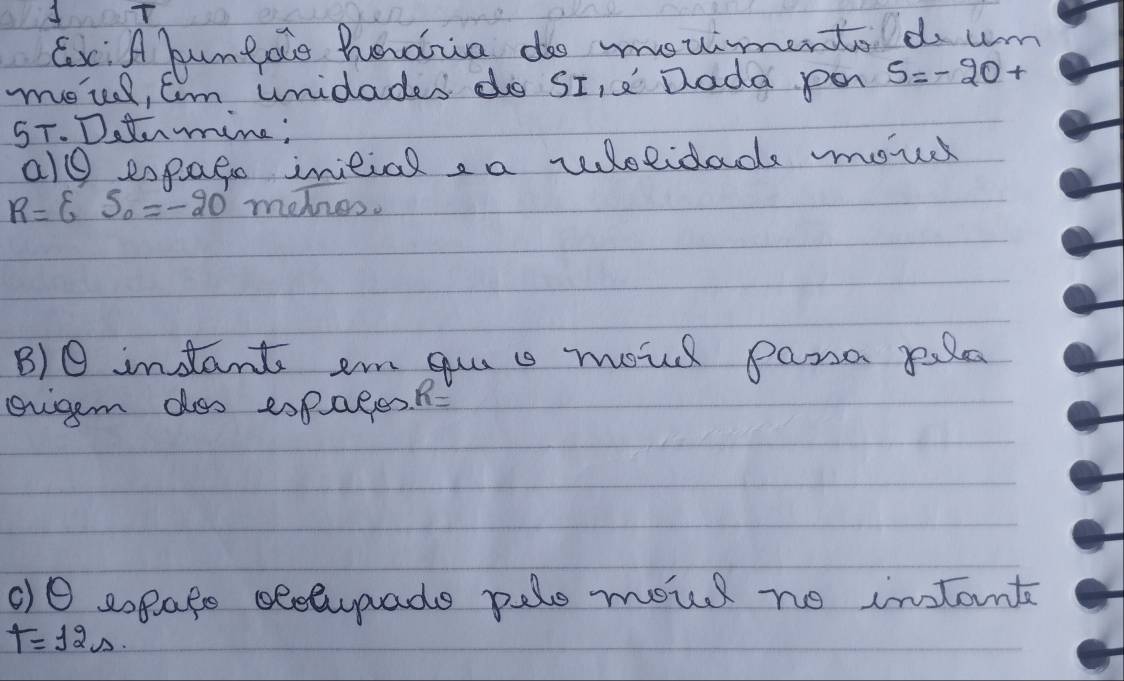 Ex: A função horária do movimento de um
móvel, Em unidades do SI, é Dada por S=-20+
5T. Determine:
a) O espaço inicial e a velocidade móvel
R= É S₀=-20 metros.
B) O instante em que o móvel passa pela
origem dos espaços. R=
c) O espaço ocolupado pelo móvel no instante
T=12s.